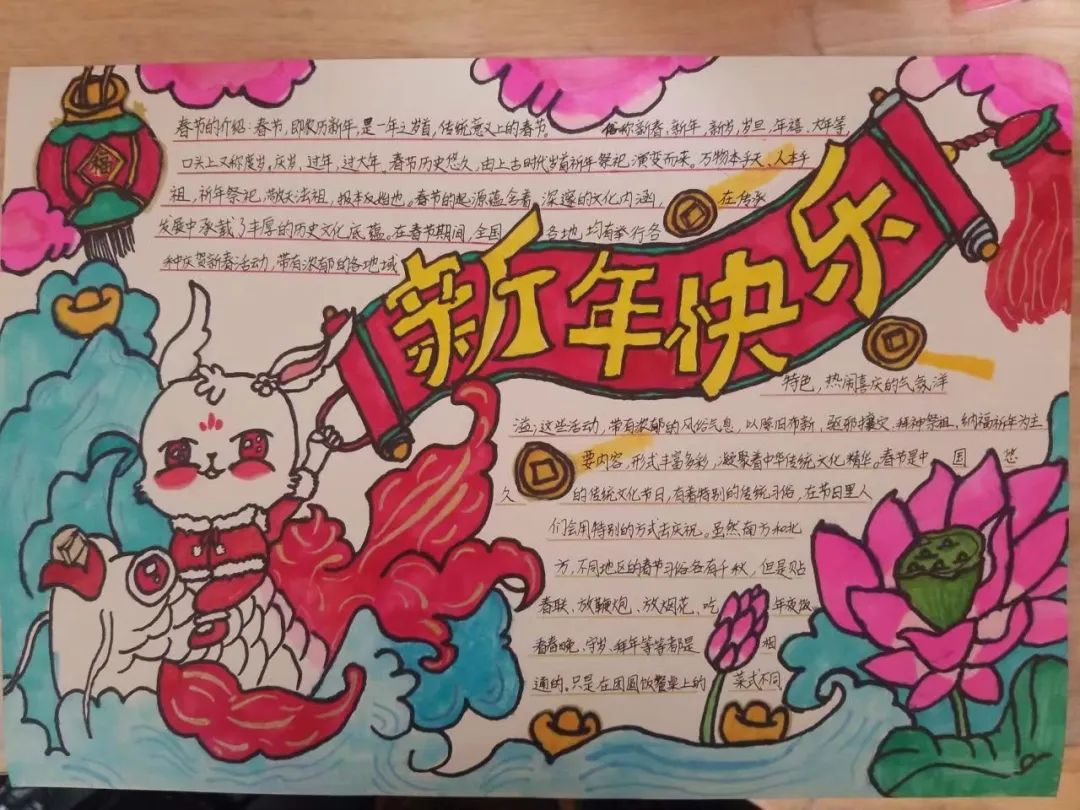 福
春节的介绍:春节,即农历新年,是一年之岁首,传统意义上的春节。 俗称新春、新年、新岁,岁旦、年禧、大年等,
口头上又称度岁、庆岁、过年、过大年。春节历史悠久,由上古时代岁首祈年祭祀演变而来。万物本乎天、人本乎
祖,祈年祭祀、敬天法祖,报本反始也。春节的起源蕴含着深邃的文化内涵, 在传承
发展中承载了丰厚的历史文化底蕴。在春节期间,全国 各地均有举行各
种庆贺新春活动,带有浓郁的各地域
新年快乐
特色,热闹喜庆的气氛洋
溢;这些活动,带有浓郁的风俗气息,以除旧布新、驱邪攘灾、拜神祭祖、纳福祈年为主
要内容,形式丰富多彩,凝聚着中华传统文化精华。春节是中 国 悠
久 的传统文化节日,有着特别的传统习俗,在节日里人
们会用特别的方式去庆祝。虽然南方和北
方,不同地区的春节习俗各有千秋,但是贴
春联、放鞭炮、放烟花、吃 年夜饭
看春晚、守岁、拜年等等都是 相
通的。只是在团圆饭餐桌上的 菜式不同